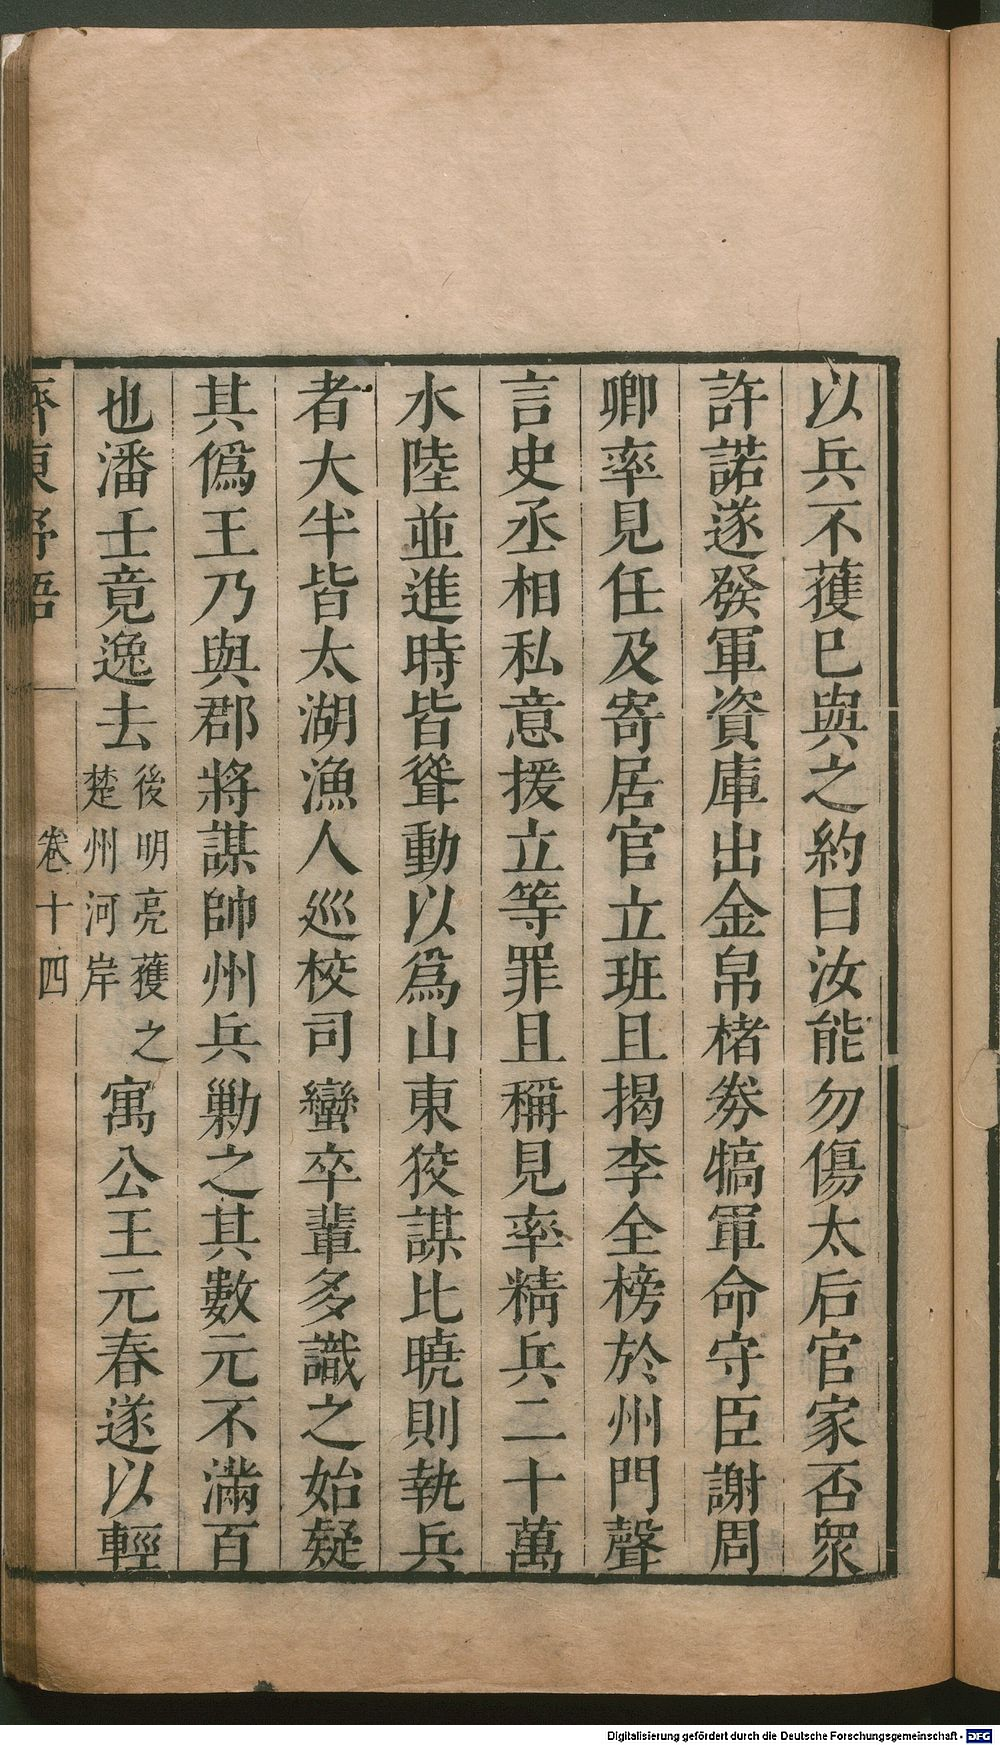 以兵不獲巳與之約曰汝能勿傷太后官家否衆
許諾遂發軍資庫出金帛楮劵犒軍命守臣謝周
卿率見任及寄居官立班且揭李全榜於州門聲
言史丞相私意援立等罪且稱見率精兵二十萬
水陸並進時皆聳動以爲山東狡謀比曉則執兵
者大半皆太湖漁人巡校司蠻卒輩多識之始疑
其僞王乃與郡將謀帥州兵勦之其數元不滿百
也潘壬竟逸去後明亮獲之楚州河岸寓公王元春遂以輕
齊東野語 卷十四
Digitalisierung gefördert durch die Deutsche Forschungsgemeinschaft - DFG